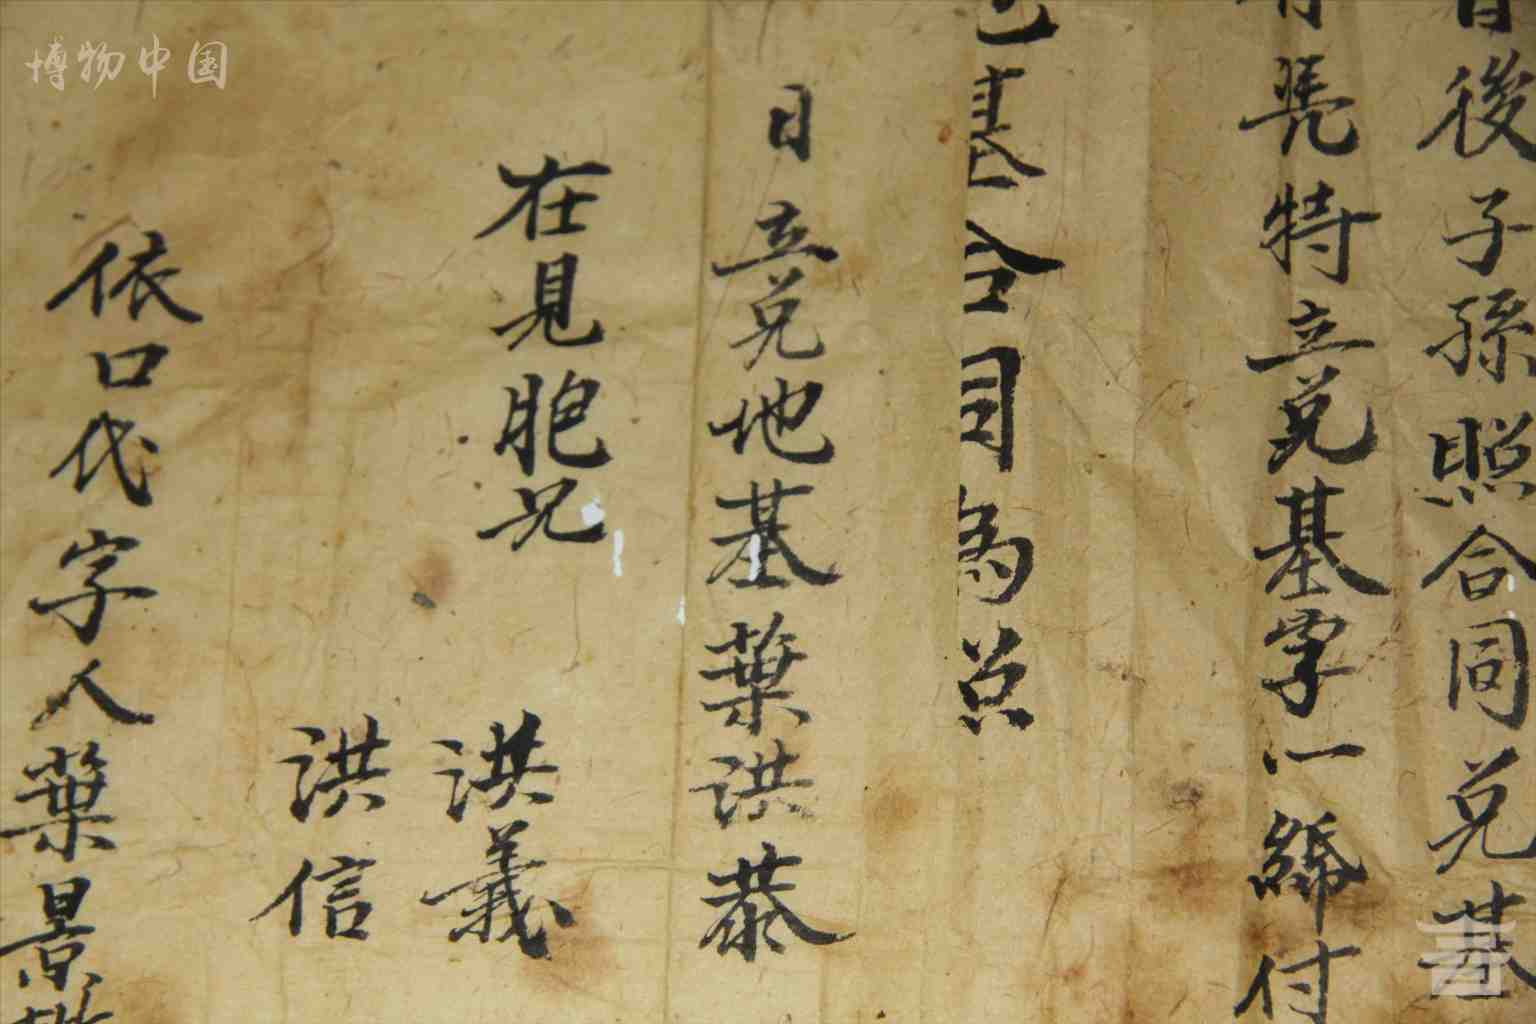 日後子孫照合同兑基
有凭特立兑基字一紙付
地基合同為兑
日立兑地基葉洪恭
在見胞兄 洪義
洪信
依口代字人葉景
博物中国